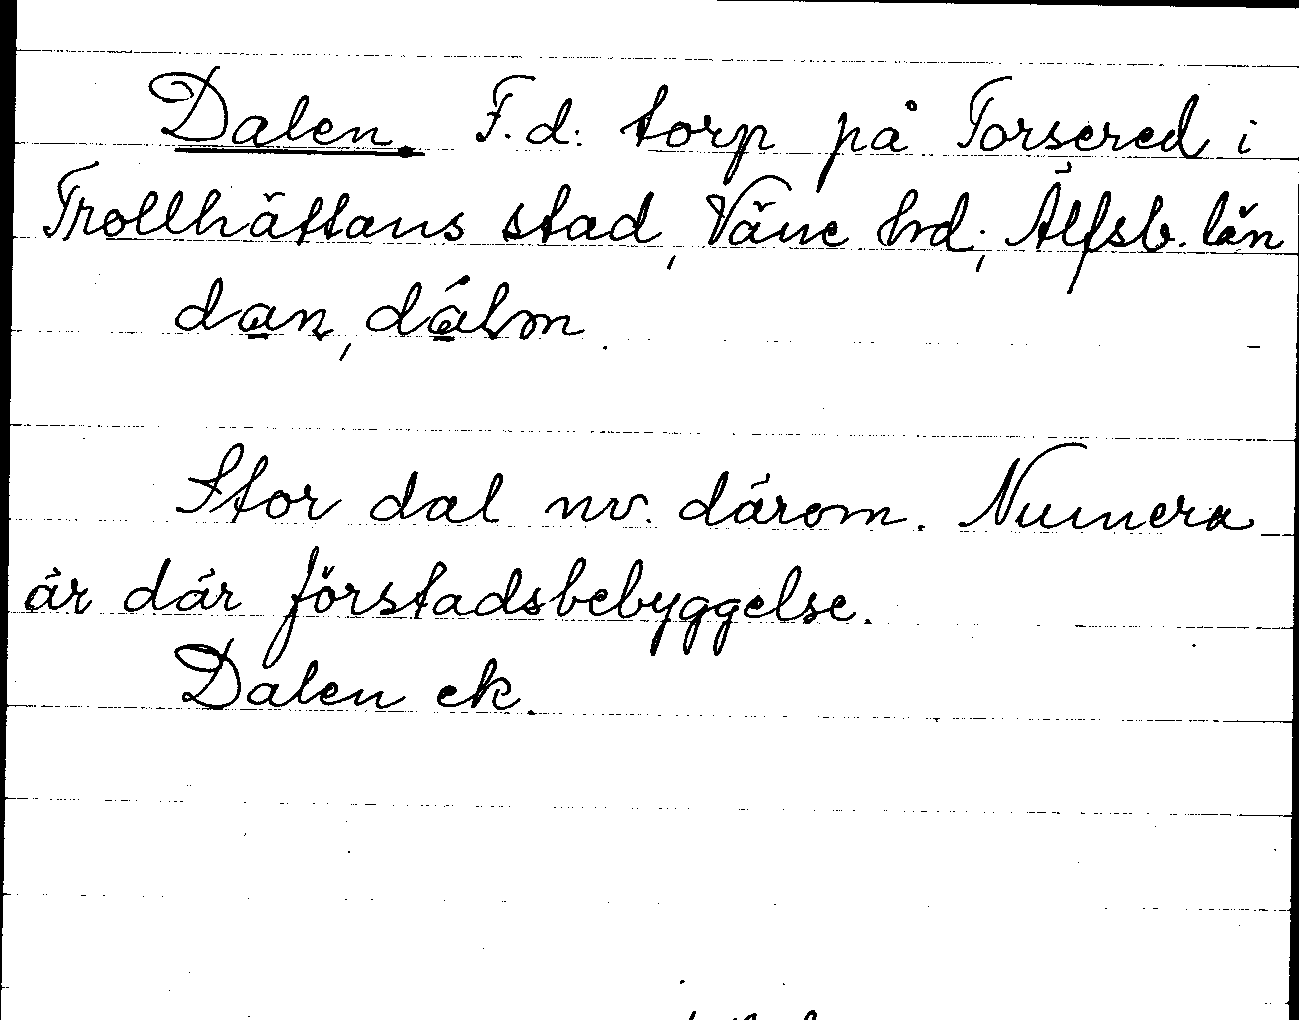 Dalen. F.d. torp på Torsered i
Trollhättans stad, Väne hd, Älfsb. län
dan, dálm.
Stor dal nv. därom. Numera
är där förstadsbebyggelse.
Dalen ek.